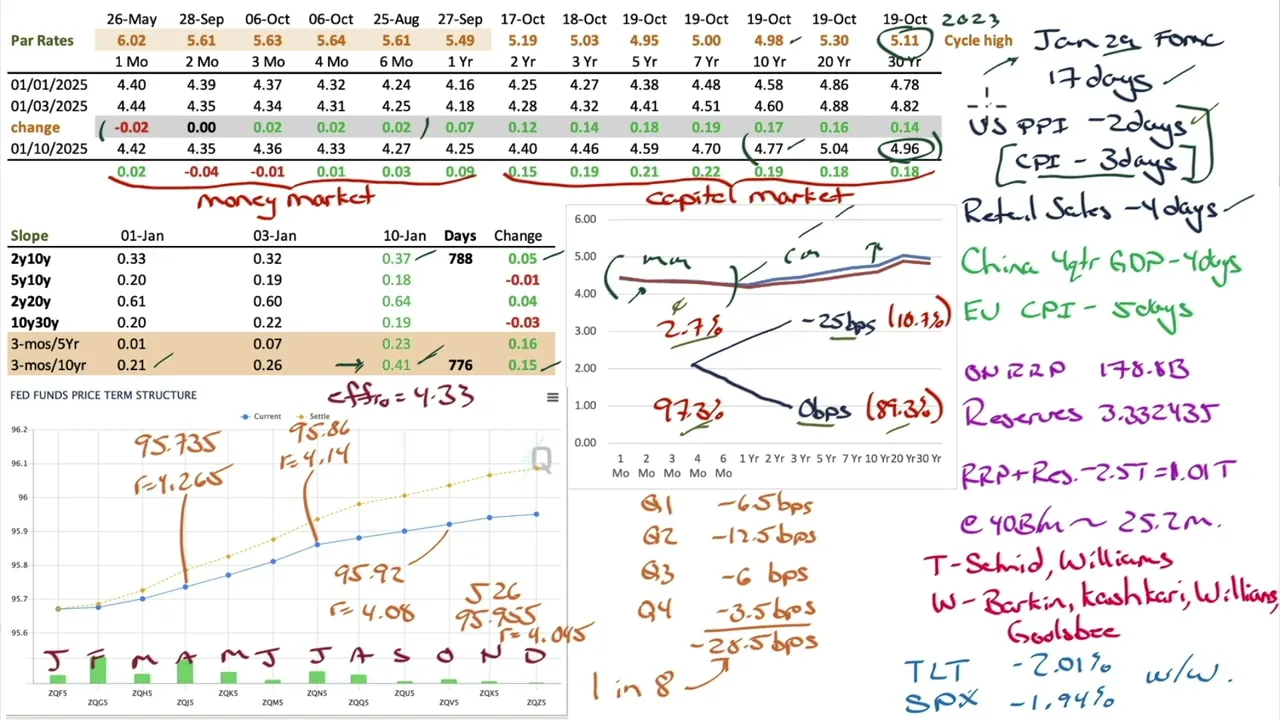 26-May 28-Sep 06-Oct 06-Oct 25-Aug 27-Sep 17-Oct 18-Oct 19-Oct 19-Oct 19-Oct 19-Oct 19-Oct 2023
Par Rates 6.02 5.61 5.63 5.64 5.61 5.49 5.19 5.03 4.95 5.00 4.98 5.30 5.11 Cycle high
1 Mo 2 Mo 3 Mo 4 Mo 6 Mo 1 Yr 2 Yr 3 Yr 5 Yr 7 Yr 10 Yr 20 Yr 30 Yr
01/01/2025 4.40 4.39 4.37 4.32 4.24 4.16 4.25 4.27 4.38 4.48 4.58 4.86 4.78
01/03/2025 4.44 4.35 4.34 4.31 4.25 4.18 4.28 4.32 4.41 4.51 4.60 4.88 4.82
change -0.02 0.00 0.02 0.02 0.02 0.07 0.12 0.14 0.18 0.19 0.17 0.16 0.14
01/10/2025 4.42 4.35 4.36 4.33 4.27 4.25 4.40 4.46 4.59 4.70 4.77 5.04 4.96
0.02 -0.04 -0.01 0.01 0.03 0.09 0.15 0.19 0.21 0.22 0.19 0.18 0.18
money market
capital market
Jan 29 FOMC
17 days
US PPI - 2days
[CPI - 3days]
Retail Sales - 4days
China 4qtr GDP - 4dys
EU CPI - 5days
ON RRP 178.8B
Reserves 3.332435
RRP+Res. - 2.5T = 1.01T
@ 40B/m ~ 25.2m.
T - Schmid, Williams
W - Barkin, Kashkari, Williams,
Goolsbee
TLT -2.01%
SPX -1.94%
w/w.
Slope 01-Jan 03-Jan 10-Jan Days Change
2y10y 0.33 0.32 0.37 788 0.05
5y10y 0.20 0.19 0.18 -0.01
2y20y 0.61 0.60 0.64 0.04
10y30y 0.20 0.22 0.19 -0.03
3-mos/5Yr 0.01 0.07 0.23 0.16
3-mos/10yr 0.21 0.26 0.41 776 0.15
effr = 4.33
6.00
5.00
4.00
3.00
2.00
1.00
0.00
mm
cm
2.7%
-25bps (10.7%)
97.3%
0bps (89.3%)
1 Mo 2 Mo 3 Mo 4 Mo 6 Mo 1 Yr 2 Yr 3 Yr 5 Yr 7 Yr 10 Yr 20 Yr 30 Yr
FED FUNDS PRICE TERM STRUCTURE
Current Settle
96.2
96.1
96
95.9
95.8
95.7
95.6
95.735
r=4.265
95.86
r=4.14
Q
95.92
r=4.08
526
95.955
r=4.045
J F M A M J J A S O N D
ZQF5 ZQG5 ZQH5 ZQJ5 ZQK5 ZQM5 ZQN5 ZQQ5 ZQU5 ZQV5 ZQX5 ZQZ5
Q1 -6.5bps
Q2 -12.5bps
Q3 -6 bps
Q4 -3.5bps
-28.5bps
1 in 8